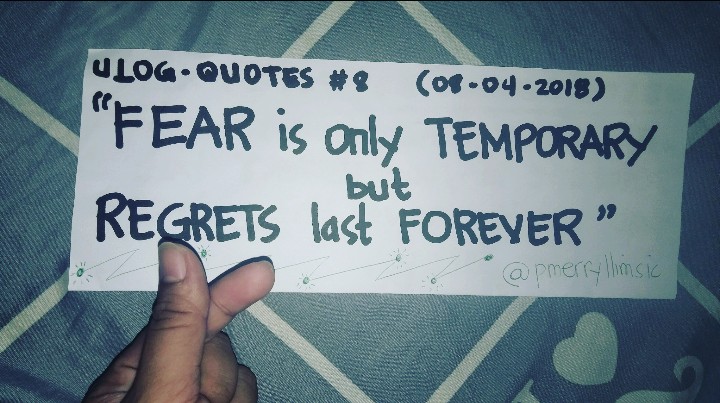 ULOG-QUOTES #8 (08-04-2018)
"FEAR is only TEMPORARY
but
REGRETS last FOREVER"
@pmerryllimsic